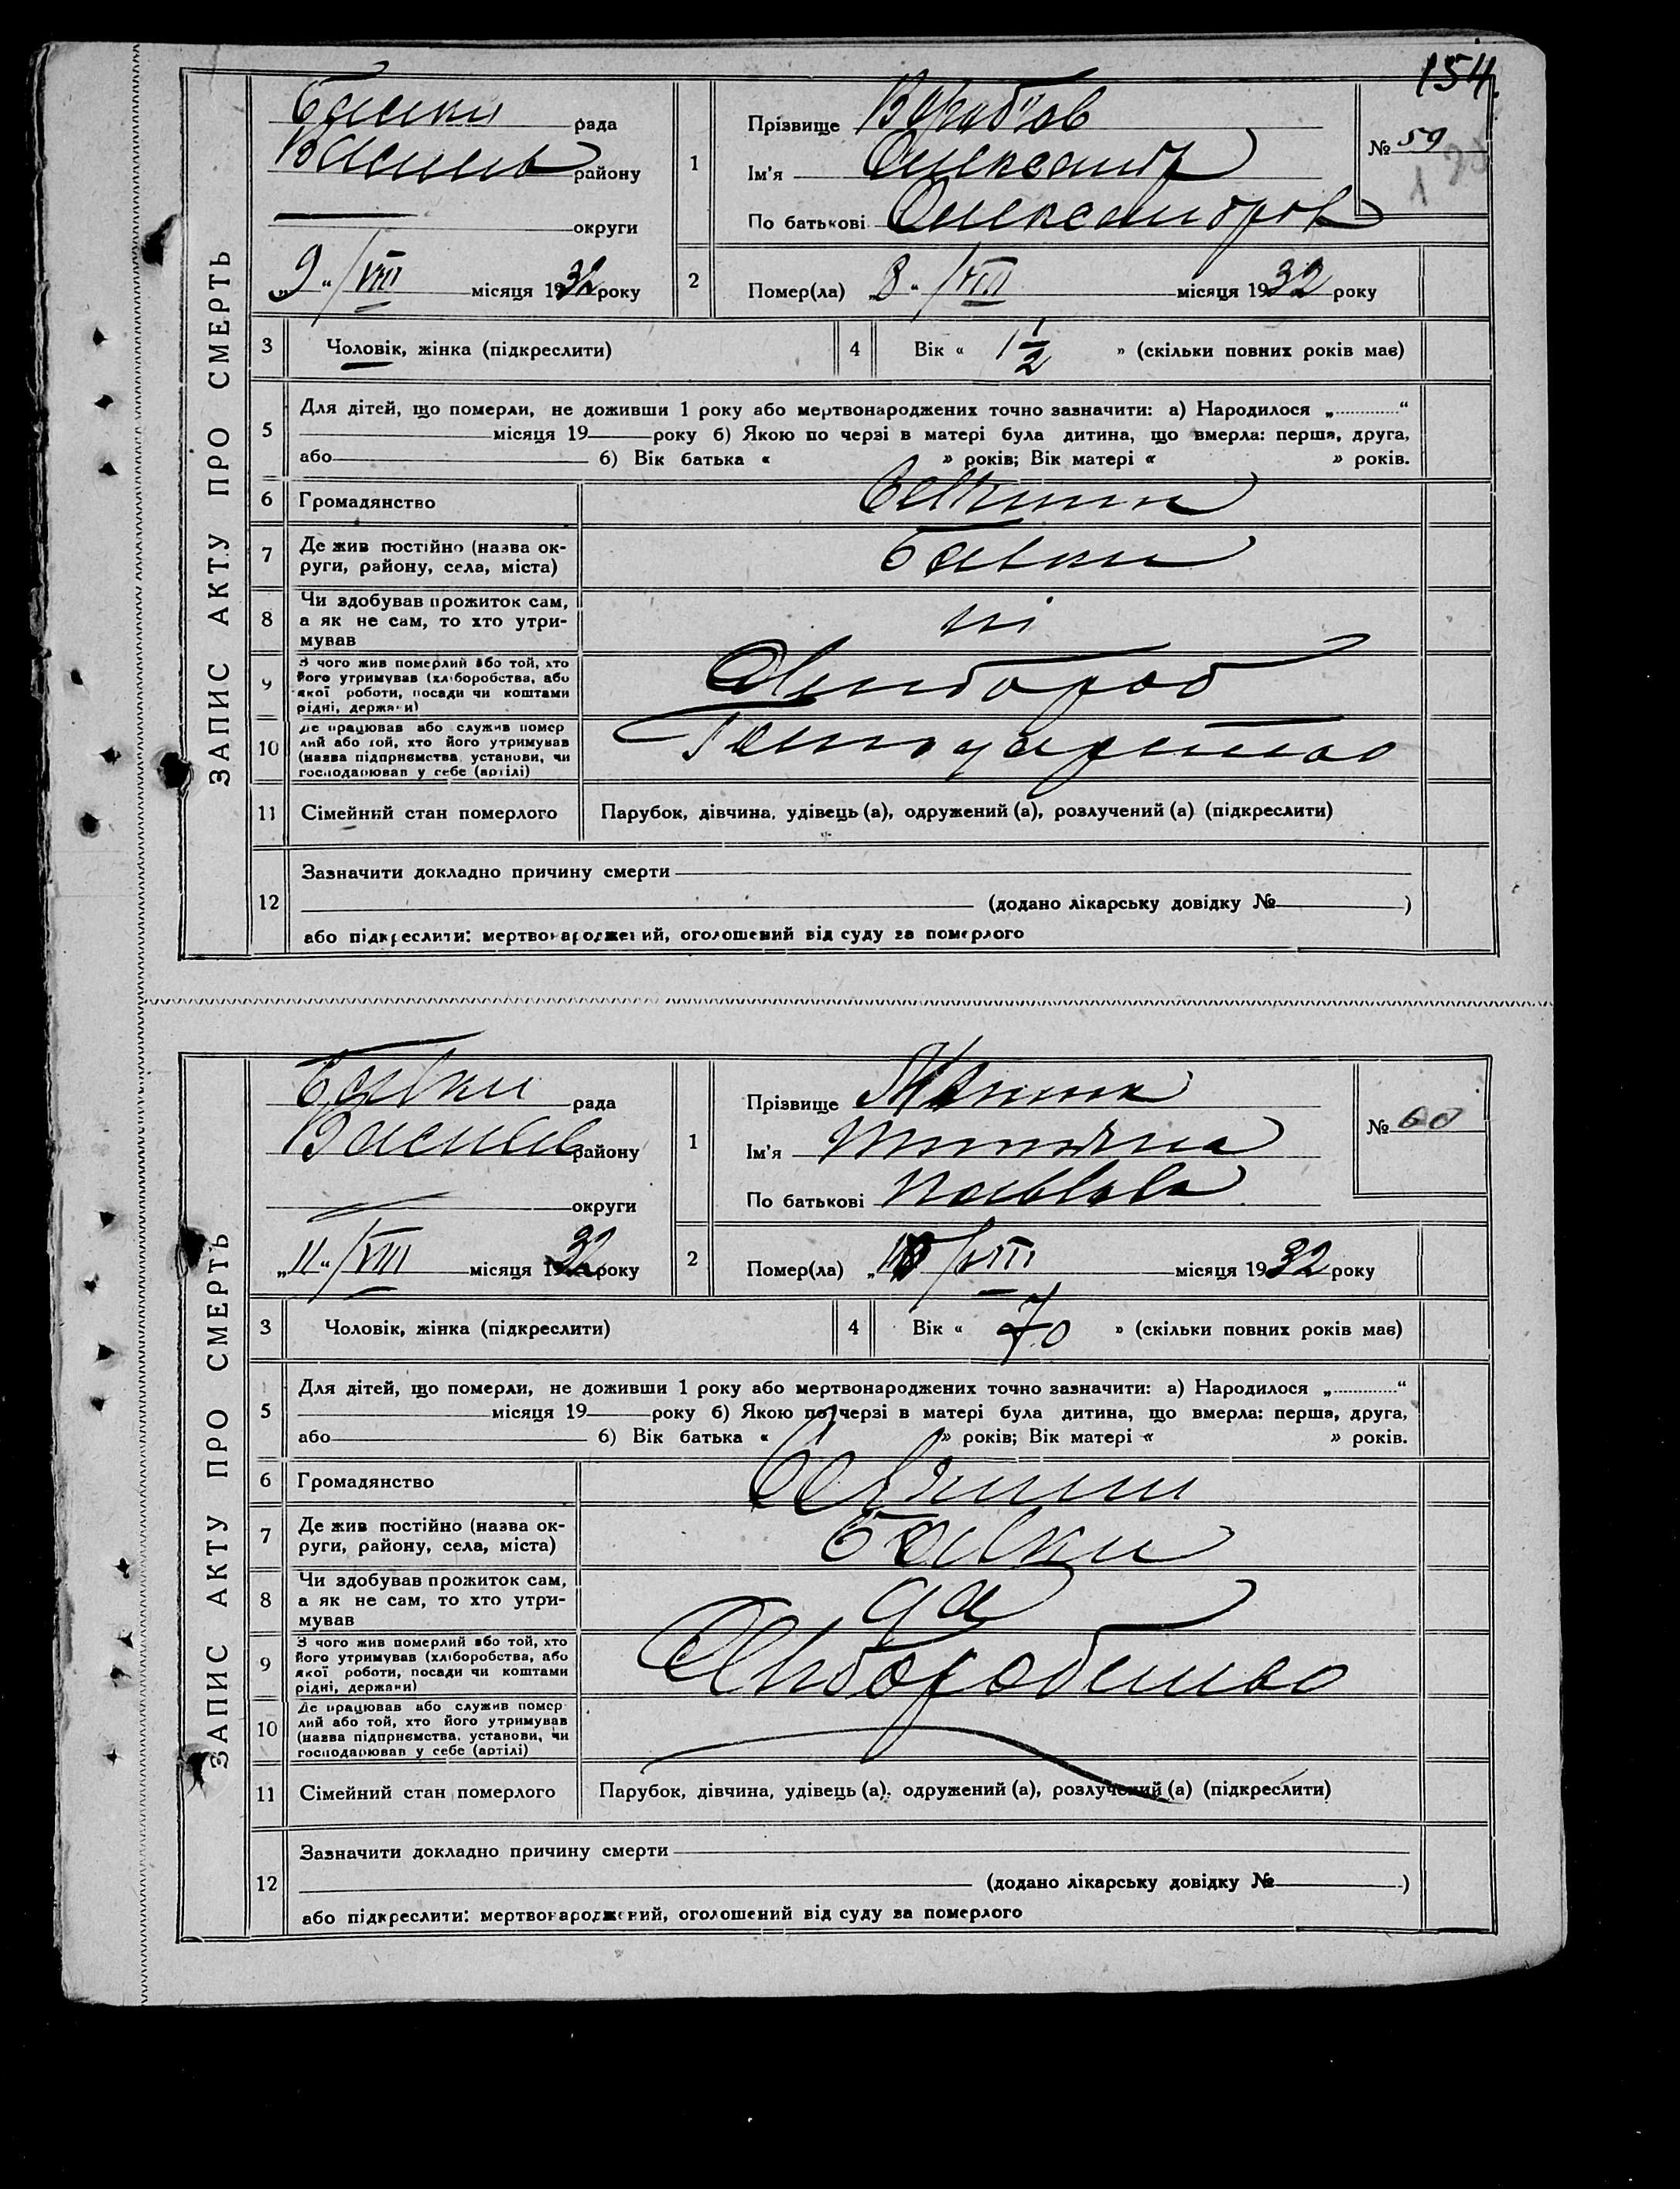 154.
ЗАПИС АКТУ ПРО СМЕРТЬ
Балки рада
Василів району
округи
„9“/VIII місяця 1932 року
1
Прізвище Вороб'йов
Ім'я Олександр
По батькові Олександров
№ 59
2
Помер(ла) „8“ /VIII місяця 1932 року
3 Чоловік, жінка (підкреслити)
4 Вік « 1 1/2 » (скільки повних років має)
5 Для дітей, що померли, не доживши 1 року або мертвонароджених точно зазначити: а) Народилося „ “
місяця 19 року б) Якою по черзі в матері була дитина, що вмерла: перша, друга,
або б) Вік батька « » років; Вік матері « » років.
6 Громадянство
7 Де жив постійно (назва ок-
руги, району, села, міста) Балки
8 Чи здобував прожиток сам,
а як не сам, то хто утри-
мував ні
9 З чого жив померлий або той, хто
його утримував (хліборобства, або
якої роботи, посади чи коштами
рідні, держави) Хлібороб
10 Де працював або служив помер
лий або той, хто його утримував
(назва підприємства, установи, чи
господарював у себе (артілі)
11 Сімейний стан померлого Парубок, дівчина, удівець (а), одружений (а), розлучений (а) (підкреслити)
12 Зазначити докладно причину смерти
(додано лікарську довідку № )
або підкреслити: мертвонароджений, оголошений від суду за померлого
ЗАПИС АКТУ ПРО СМЕРТЬ
Балки рада
Василів району
округи
„11“/VIII місяця 1932 року
1
Прізвище
Ім'я
По батькові Павлова
№ 60
2
Помер(ла) „10 /VIII місяця 1932 року
3 Чоловік, жінка (підкреслити)
4 Вік « 70 » (скільки повних років має)
5 Для дітей, що померли, не доживши 1 року або мертвонароджених точно зазначити: а) Народилося „ “
місяця 19 року б) Якою по черзі в матері була дитина, що вмерла: перша, друга,
або б) Вік батька « » років; Вік матері « » років.
6 Громадянство
7 Де жив постійно (назва ок-
руги, району, села, міста) Балки
8 Чи здобував прожиток сам,
а як не сам, то хто утри-
мував да
9 З чого жив померлий або той, хто
його утримував (хліборобства, або
якої роботи, посади чи коштами
рідні, держави) Хліборобство
10 Де працював або служив помер
лий або той, хто його утримував
(назва підприємства, установи, чи
господарював у себе (артілі)
11 Сімейний стан померлого Парубок, дівчина, удівець (а), одружений (а), розлучений (а) (підкреслити)
12 Зазначити докладно причину смерти
(додано лікарську довідку № )
або підкреслити: мертвонароджений, оголошений від суду за померлого